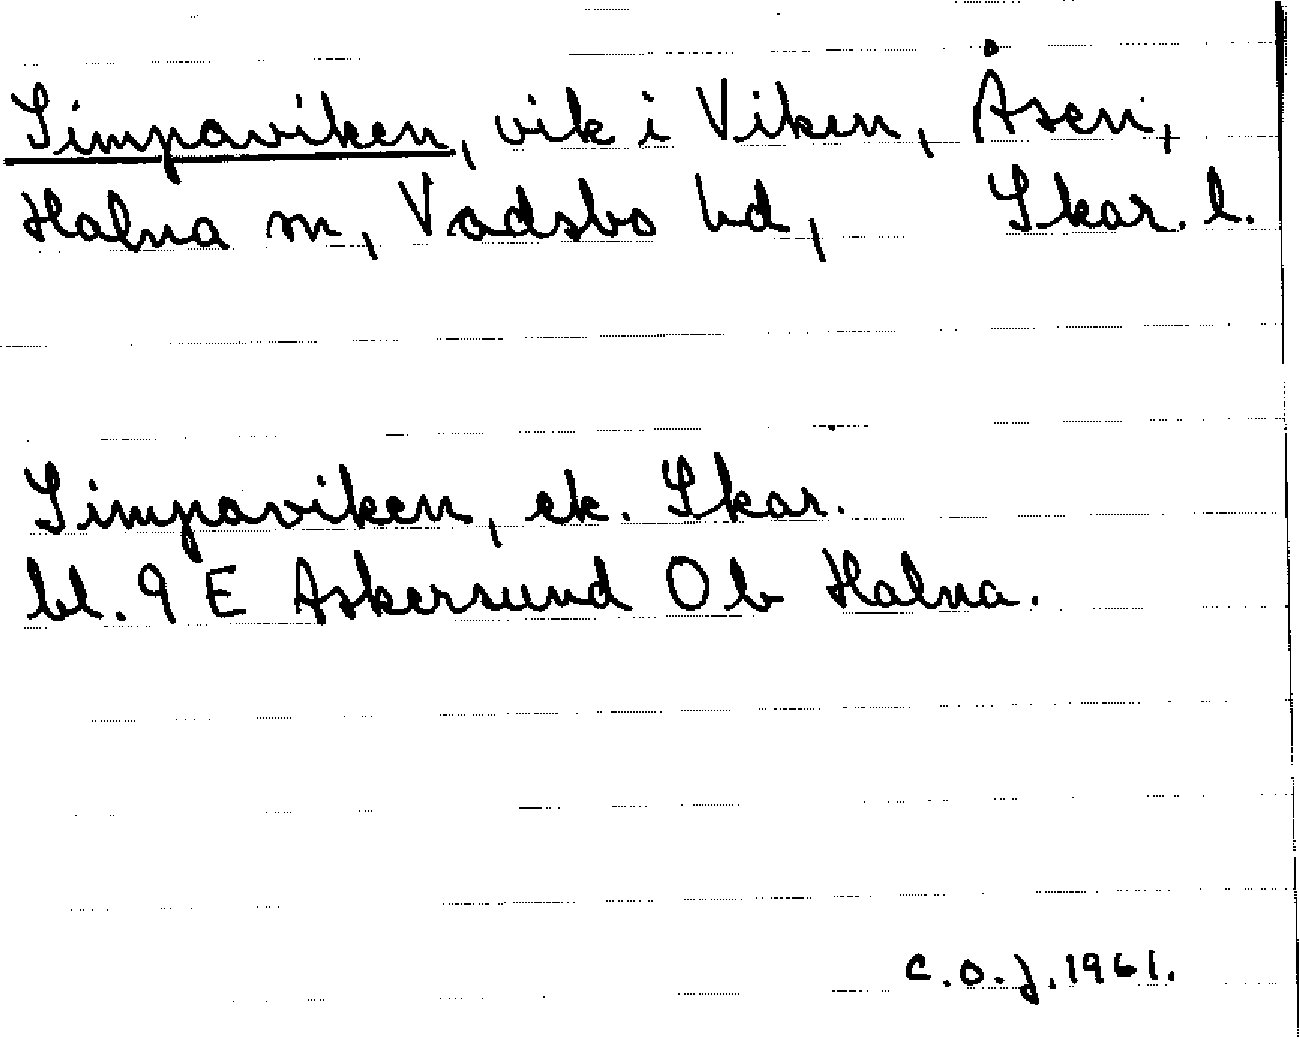 Simpaviken, vik i Viken, Åsen,
Halna sn, Vadsbo hd, Skar. l.
Simpaviken, ek. Skar.
bl. 9 E Askersund 0 b Halna.
C.O.J. 1961.